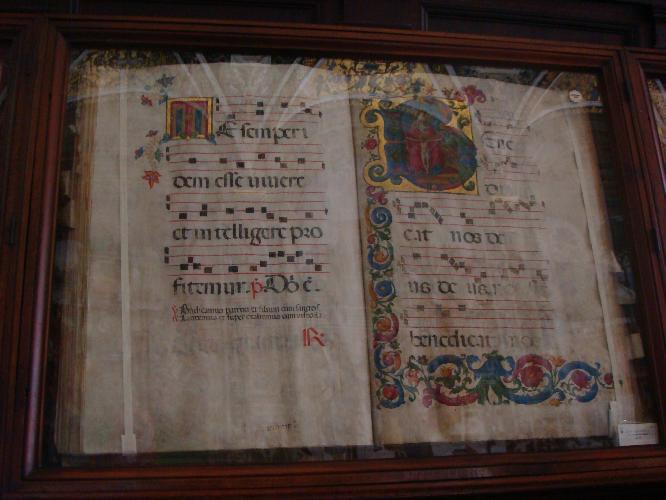 E semper i
dem esse vivere
et intelligere pro
fitemur. p Do ē.
Benedicamus patrem et filium cum sancto s
Laudemus et super exaltemus eum in secula
R
ene
di
cat nos de
us de us nos
benedicat nos